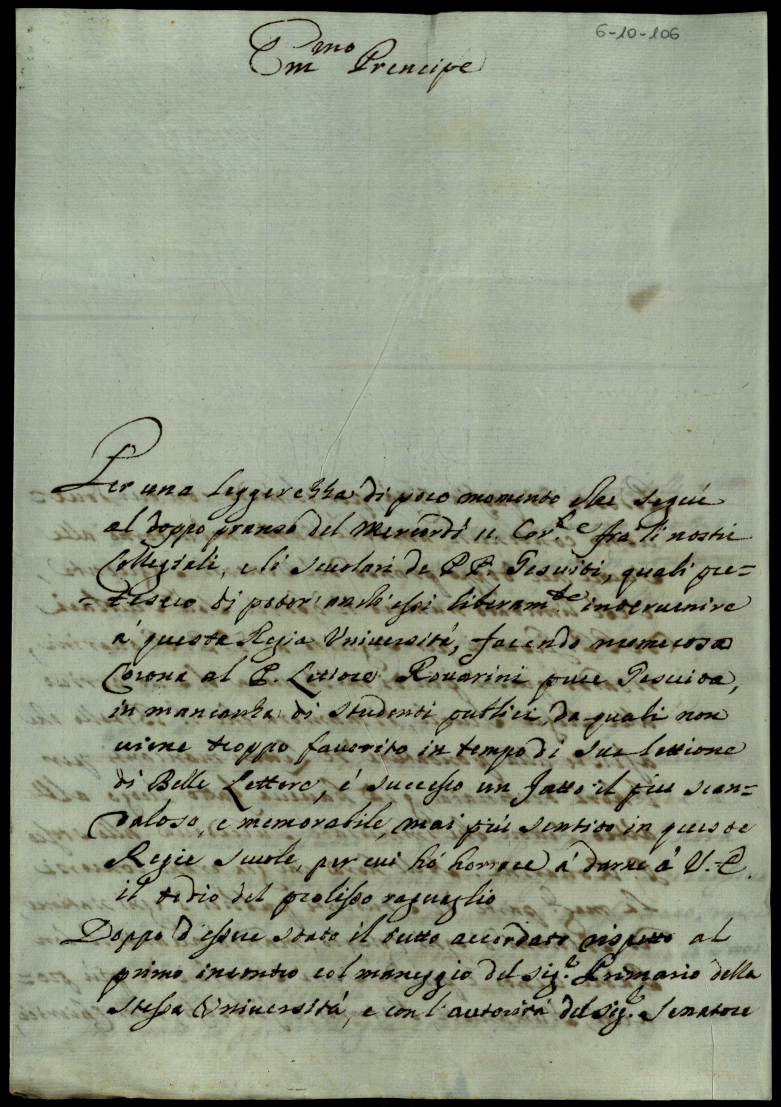 6-10-106
Em.mo Prencipe
Per una leggerezza di poco momento che seguì
al doppo pranso del Mercordì 11. Cor.te fra li nostri
Collegiali, e li scuolari de P P. Gesuiti, quali pre-
tesero di poter anch'essi liberam.te intervenire
à questa Regia Università, facendo numerosa
Corona al P. Lettore Rovarini pure Gesuita,
in mancanza di studenti publici, da quali non
viene troppo favorito in tempo di sue lettione
di Belle Lettere, è successo un fatto il più scan-
daloso, e memorabile, mai più sentito in queste
Regie scuole, per cui hò horrore à darne à V. E.
il tedio del prolisso raguaglio
Doppo d'essere stato il tutto accordato rispetto al
primo incontro col maneggio del sig.r Primario della
stessa Università, e con l'autorità del sig.r Senatore